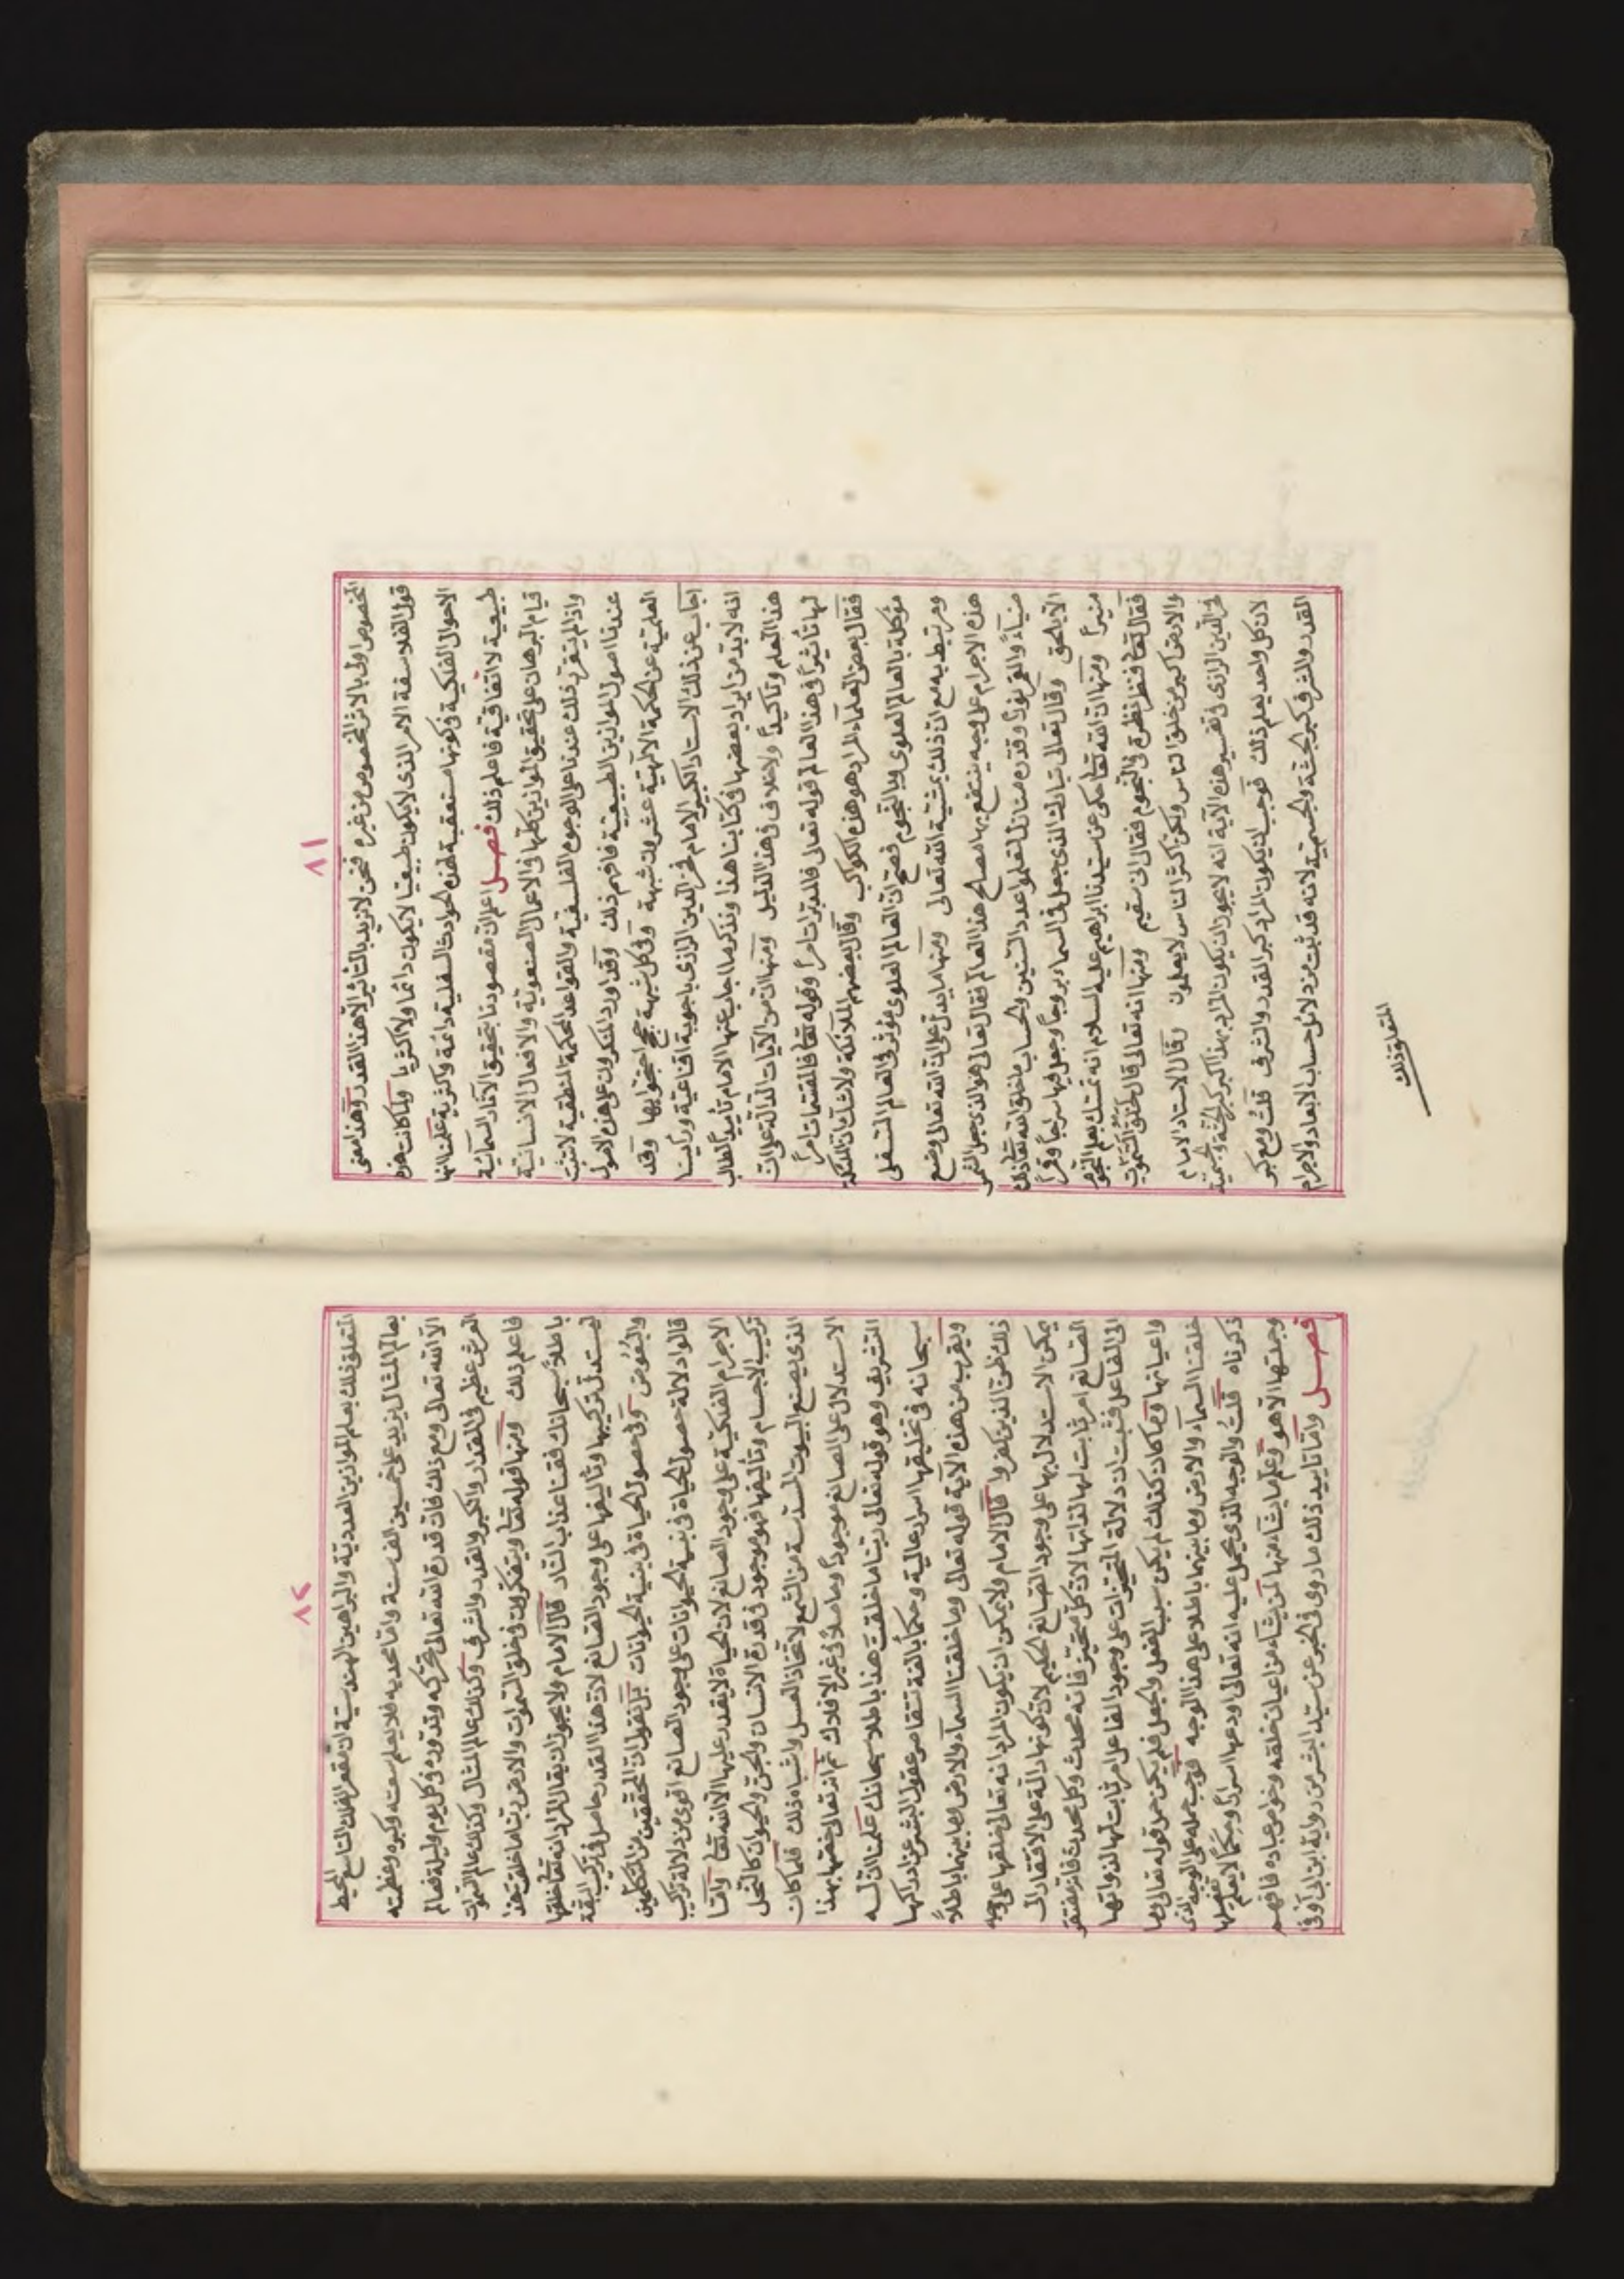 ٨١
المخصوص اولى بالاثر المخصوص من غيره فنحن لا نريد بالتاثير الا هذا القدر وهذا معنى
قول الفلاسفة الامر الذى لا يكون طبيعيا لا يكون دائما ولا اكثريا ولما كانت هذه
الاحوال الفلكية فى كونها مستعقبة لهذه الحوادث السفلية دائمة واكثرية علمنا انها
طبيعية لا اتفاقية فاعلم ذلك فصل اعلم ان مقصودنا بتحقيق الآثار السمائية
قيام البرهان على تحقيق الموازين كلها فى الاعمال الصنعوية والافعال الانسانية
واذا لم يتقرر ذلك عندنا على الوجوه الفلسفية والقواعد الحكمية المنطقية لا تثبت
عندنا اصول الموازين الطبيعية فافهم ذلك وقد اورد المنكرون على هذه الاصول
العلمية عن الحكمة الالهية عشرين شبهة وفى كل شبهة حجج احتجوا بها وقد
اجاب عن ذلك الاستاد الكبير الامام فخر الدين الرازى باجوبة اقناعية ورأينا
انه لا بد من ايراد بعضها فى كتابنا هذا ونذكر ما اجاب عنها الامام تأييدا لطالب
هذا العلم وتأكيداً ولا خلاف فى هذا الدليل ومنها ان من الآيات الدالة على ان
لها تأثيراً فى هذا العالم قوله تعالى فالمدبرات امراً وقوله تعالى فالمقسمات امراً
فقال بعض العلماء المراد هو هذه الكواكب وقال بعضهم الملائكة ولا شك ان الملائكة
موكلة بالعالم العلوى وبالنجوم فصح ان العالم العلوى مؤثر فى العالم السفلى
ومرتبط به مع ان ذلك بمشيئة الله تعالى ومنها ما يدل على ان الله تعالى وضع
هذه الاجرام على وجه ينتفع بها مصالح هذا العالم فقال تعالى هو الذى جعل الشمس
ضياءً والقمر نوراً وقدره منازل لتعلموا عدد السنين والحساب ما خلق الله ذلك
الا بالحق وقال تعالى تبارك الذى جعل فى السماء بروجاً وجعل فيها سراجاً وقمراً
منيراً ومنها ان الله تعالى حكى عن سيدنا ابراهيم عليه السلام انه تمسك بعلم النجوم
فقال تعالى فنظر نظرة فى النجوم فقال انى سقيم ومنها انه تعالى قال لخلق السموات
والارض اكبر من خلق الناس ولكن اكثر الناس لا يعلمون وقال الاستاد الامام
فخر الدين الرازى فى تفسير هذه الآية انه لا يجوز ان يكون المراد بهذا الكبر كبر الجثة والجسمية
لان كل واحد يعلم ذلك فوجب ان يكون المراد كبر القدر والشرف قلتُ ومع كبر
القدر والشرف كبر الجثة والجسمية لانه قد ثبت من دلائل حساب الابعاد والاجرام
المتعلق ذلك
٨٢
المتعلق ذلك بعلم الموازين العددية والبراهين الهندسية ان مقعر الفلك التاسع المحيط
بعالم المثال يزيد على خمسين الف سنة واما محدبه فلا يعلم سعته وكبره وعظمته
الا الله تعالى ومع ذلك فان قدرة الله تعالى تحركه وتدوره فى كل يوم وليلة فعالم
العرش عظيم فى المقدار والكبر والقدر والشرف وكذلك عالم المثال وكذلك عالم السموات
فاعلم ذلك ومنها قوله تعالى ويتفكرون فى خلق السموات والارض ربنا ما خلقت هذا
باطلاً سبحانك فقنا عذاب النار قال الامام ولا يجوز ان يقال المراد انه تعالى خلقها
ليستدل بتركيبها وتأليفها على وجود الصانع لان هذا القدر حاصل فى تركيب البقة
والبعوض وفى حصول الحياة فى بنية الحيوانات بل نقول ان المحققين من المتكلمين
قالوا دلالة حصول الحياة فى بنية الحيوانات على وجود الصانع اقوى من دلالة تركيب
الاجرام الفلكية على وجود الصانع لان الحياة لا يقدر عليها الا الله تعالى واما
تركيب الاجسام وتأليفها فهو موجود فى قدرة الانسان والجن والحيوان كالنحل
الذى يصنع البيوت المسدسة من الشمع لاتخاذ العسل واشباه ذلك فلما كان
الاستدلال على الصانع موجوداً وحاصلاً فى غير الافلاك ثم انه تعالى خصها بهذا
التشريف وهو قوله تعالى ربنا ما خلقت هذا باطلا سبحانك علمنا ان له
سبحانه فى تخليقها اسرار عالية وحكماً بالغة تتقاصر عقول البشر عن ادراكها
ويقرب من هذه الآية قوله تعالى وما خلقنا السماء والارض وما بينهما باطلاً
ذلك ظن الذين كفروا قال الامام ولا يمكن ان يكون المراد انه تعالى خلقها على وجه
يمكن الاستدلال بها على وجود الصانع الحكيم لان كونها دالة على الافتقار الى
الصانع امر ثابت لها لذاتها لان كل متحيز فانه محدث وكل محدث فانه مفتقر
الى الفاعل فثبت ان دلالة المتحيزات على وجود الفاعل امر ثابت لها لذواتها
واعيانها وما كان كذلك لم يكن سبب الفعل والجعل فلم يكن حمل قوله تعالى وما
خلقنا السماء والارض وما بينهما باطلا على هذا الوجه فوجب حمله على الوجه الذى
ذكرناه قلتُ والوجه الذى يحمل عليه انه تعالى اودعها اسراراً وحِكَماً لا يعلم تفصيلها
وجملتها الا هو وعلم ما يشاء منها لمن يشاء من اعيان خلقه وخواص عباده فافهم
فصل واما تأييد ذلك ما روى فى الخبر عن سيد البشر من رواية ابن ابى اوفى